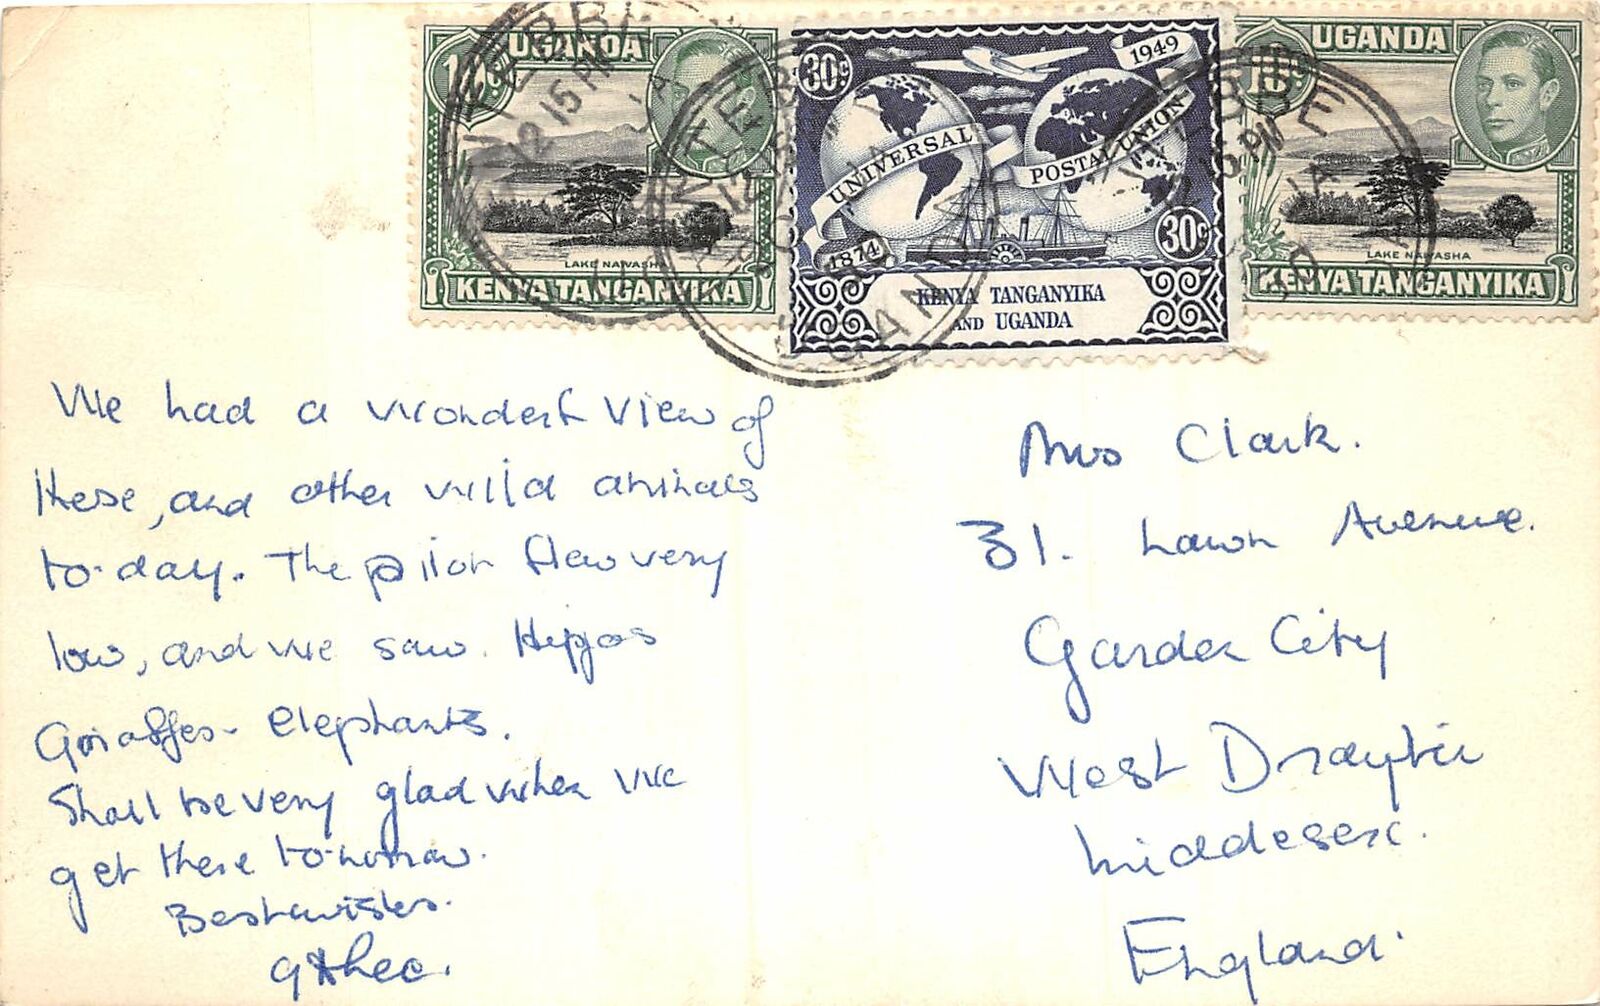 UGANDA
LAKE NAIVASHA
KENYA TANGANYIKA
30c
1949
UNIVERSAL
POSTAL UNION
1874
30c
KENYA TANGANYIKA
AND UGANDA
UGANDA
LAKE NAIVASHA
KENYA TANGANYIKA
ENTEBBE
12 15 PM
UGANDA
We had a wonderf view of
these, and other wild animals
to-day. The pilot flew very
low, and we saw. Hippos
Giraffes - elephants.
Shall be very glad when we
get there to-morrow.
Best wishes.
Mrs Clark.
31. Lawn Avenue.
Garden City
West Drayton
Middlesex.
England.